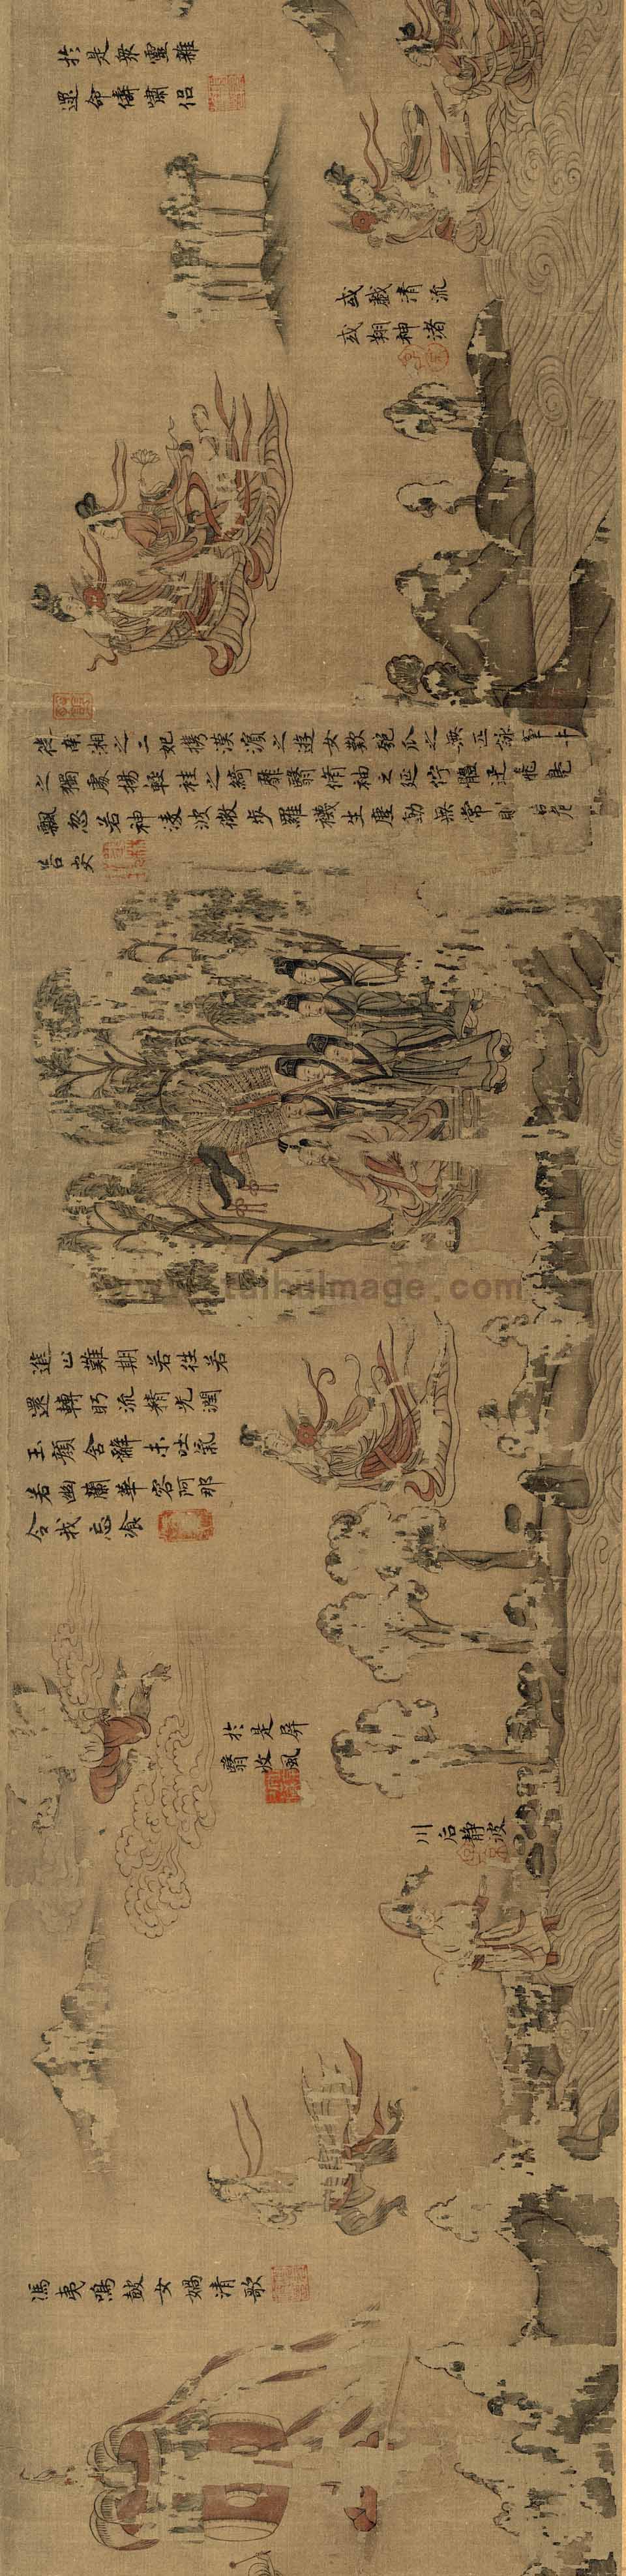 於是衆靈雜
遝命儔嘯侶
或戲清流
或翔神渚
從南湘之二妃攜漢濱之遊女歎匏瓜之無匹詠牽牛
之獨處揚輕袿之綺靡翳脩袖之延佇體迅飛鳧
飄忽若神淩波微步羅襪生塵動無常則若危
若安
進止難期若往若
還轉眄流精光潤
玉顏含辭未吐氣
若幽蘭華容阿那
令我忘飡
於是屏
翳收風
川后静波
馮夷鳴鼓女媧清歌